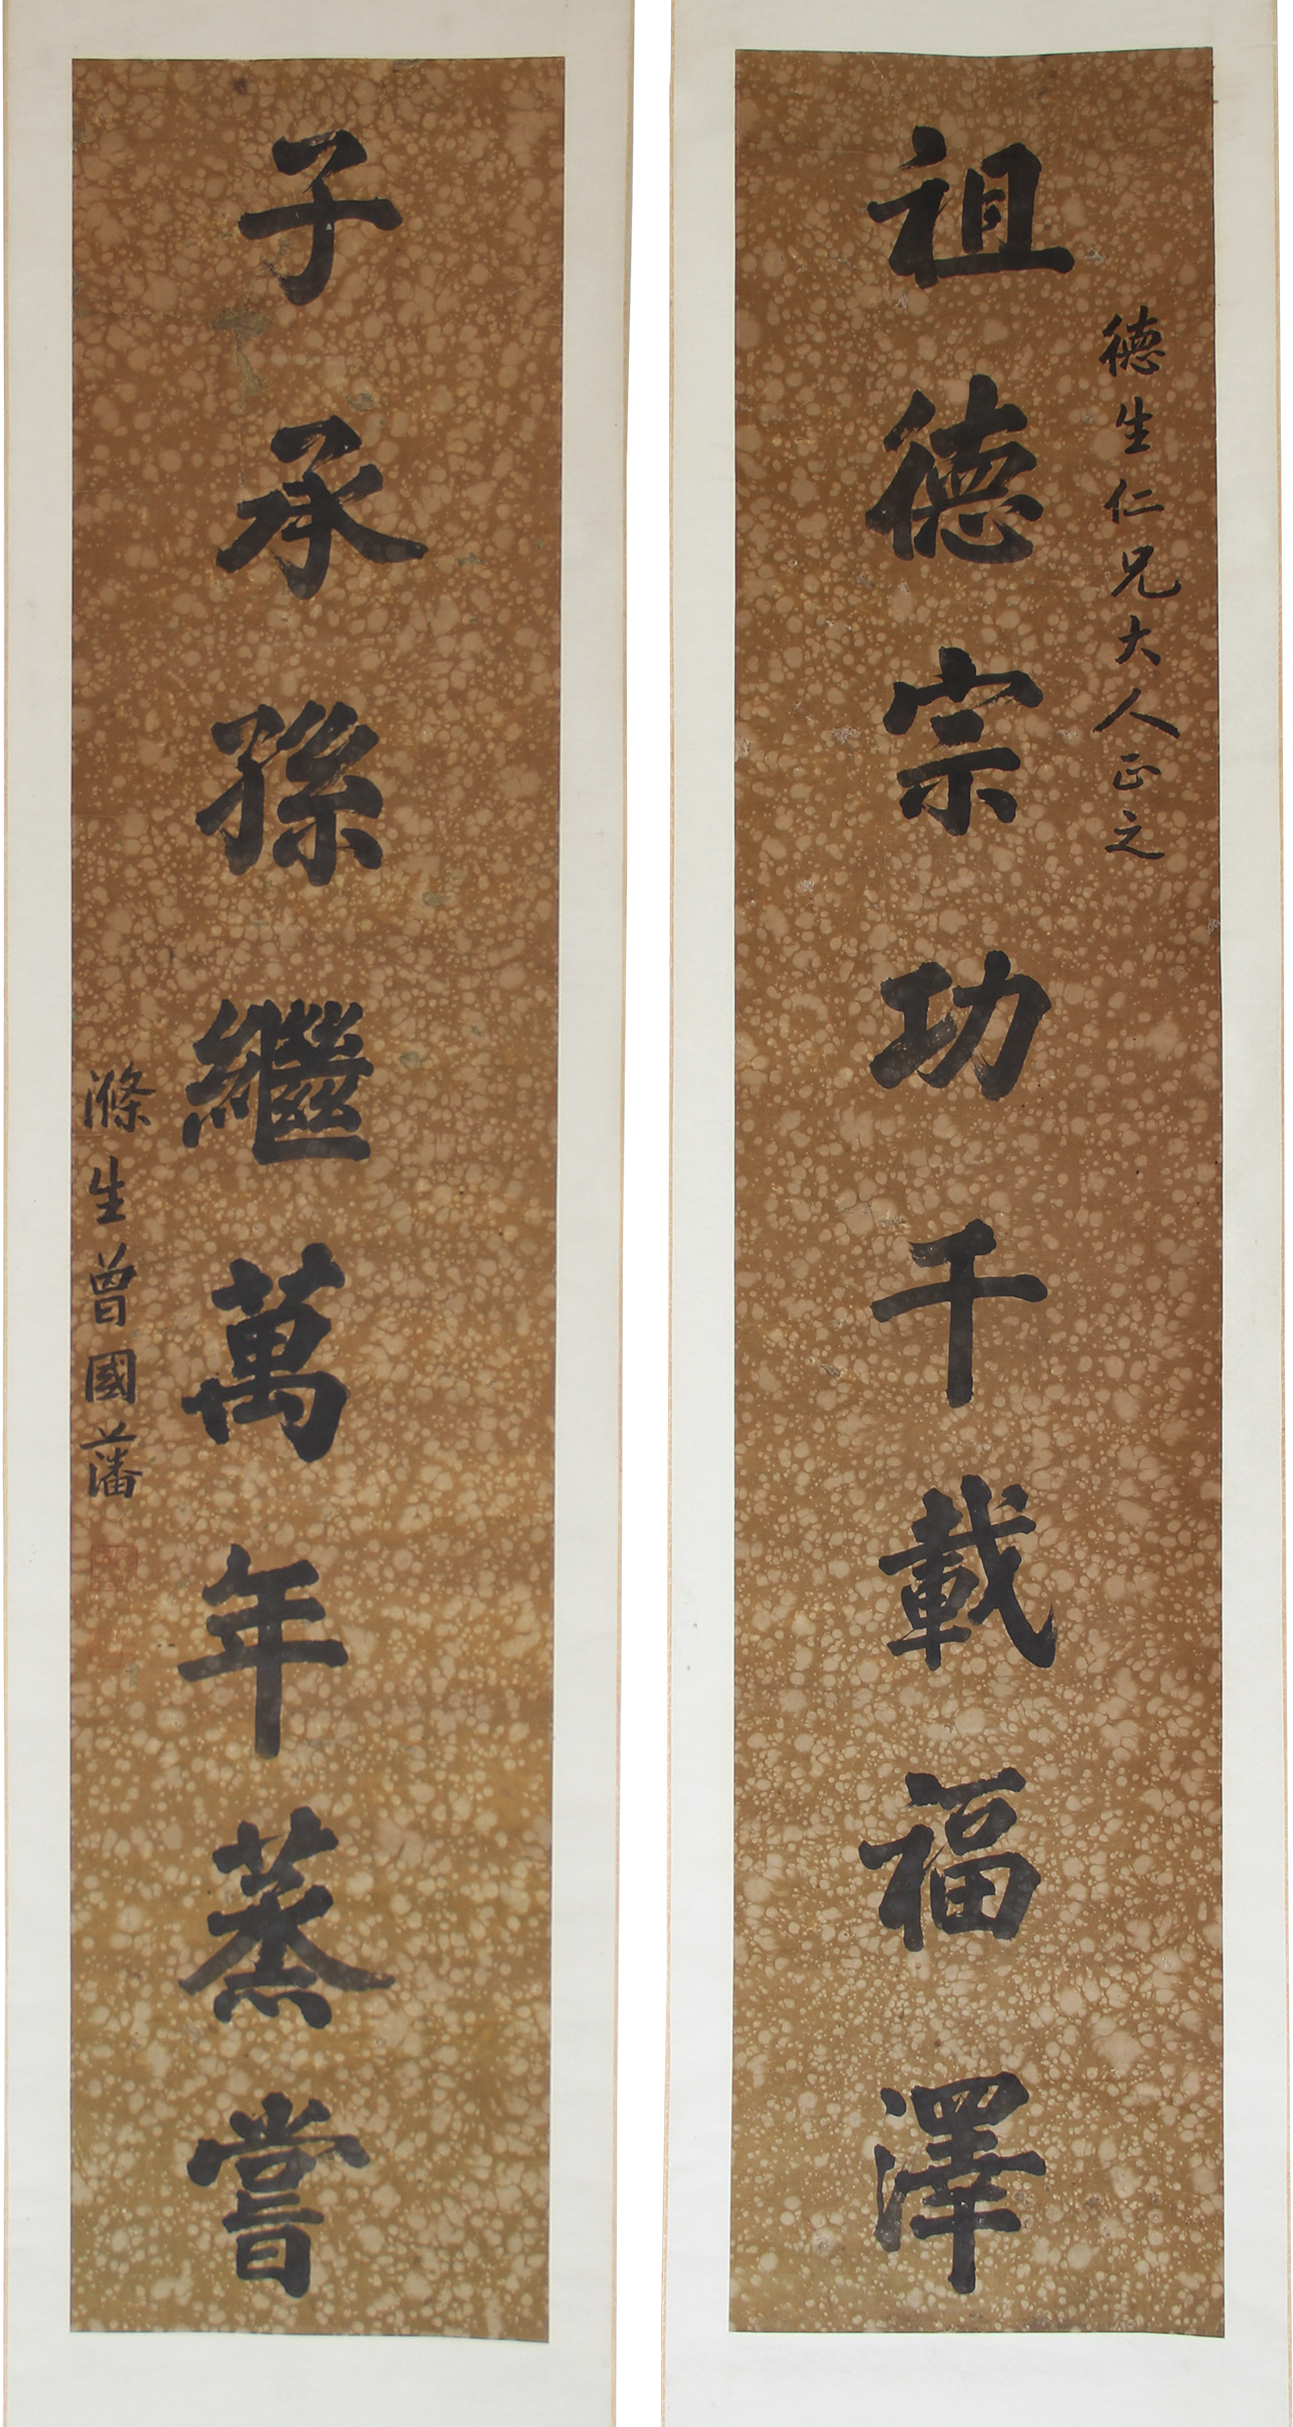 祖德宗功千載福澤
德生仁兄大人正之
子承孫繼萬年蒸嘗
滌生曾國藩